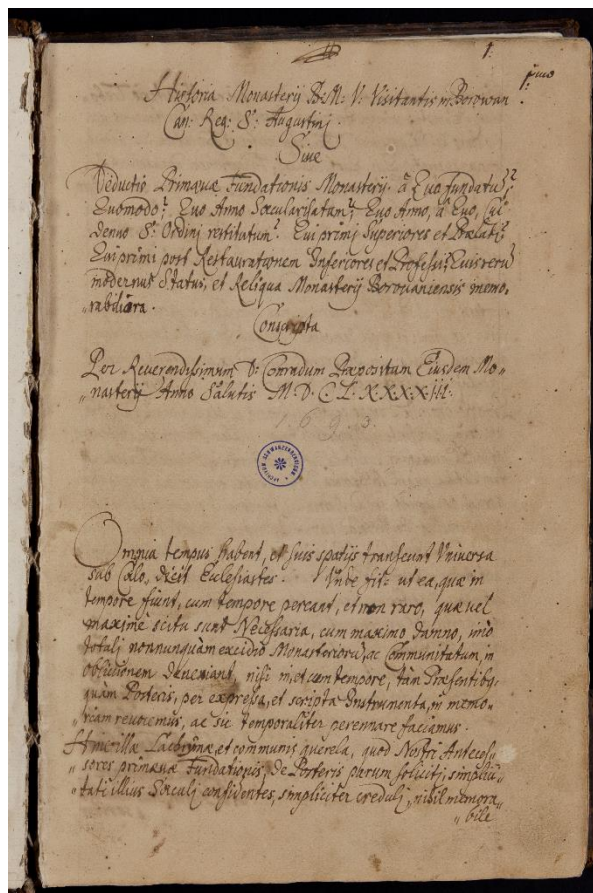 1.
primo
Historia Monasterij B. M: V: Visitantis in Borowan
Can: Reg: S: Augustinj.
Siue
Deductio Primæuæ Fundationis Monasterij. â Quo fundatũ?
Quomodo? Quo Anno Sæcularisatum? Quo Anno, â Quo,
denuo S: Ordinj restitutum? Qui primj Superiores et Prælatj?
Qui primi post Restaurationem Inferiores et Professi? Quis rerũ
modernus Status, et Reliqua Monasterij Borouaniensis memo„
„rabiliora.
Conscripta
Per Reuerendissimum D: Conradum Præpositum Eiusdem Mo„
„nasterij Anno Salutis M. D. C. L. XXXXIII.
1693.
ARCHIVUM SCHWARZENBERGICUM
Omnia tempus habent, et suis spatijs transeunt Vniuersa
sub Cælo, dicit Ecclesiastes. Vnde fit: ut ea, quæ in
tempore fiunt, cum tempore pereant, et non raro, quæ uel
maxime scitu sunt Necessaria, cum maximo damno, imò
totalj nonnunquam excidio Monasteriorũ, ac Communitatum, in
obliuionem deueniant, nisi ni, et cum tempore, tàm Præsentibq.
quàm Posteris, per expressa, et scripta Instrumenta, in memo„
„riam reuocemus, ac sic temporaliter perennare faciamus.
Hinc illæ Lachrymæ, et communis querela, quod Nostri Anteces„
„sores, primæuæ Fundationis, de Posteris parum solicitj, simplici„
„tati illius Sæculj confidentes, simpliciter credulj, nihil memora„
„bile